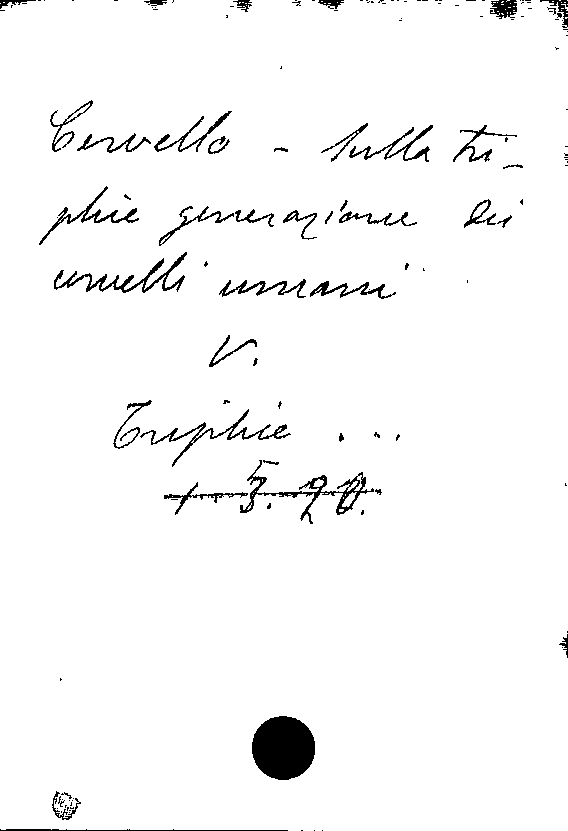 Cervello - Sulla tri-
plice generazione dei
cervelli umani
V.
Triplice ...